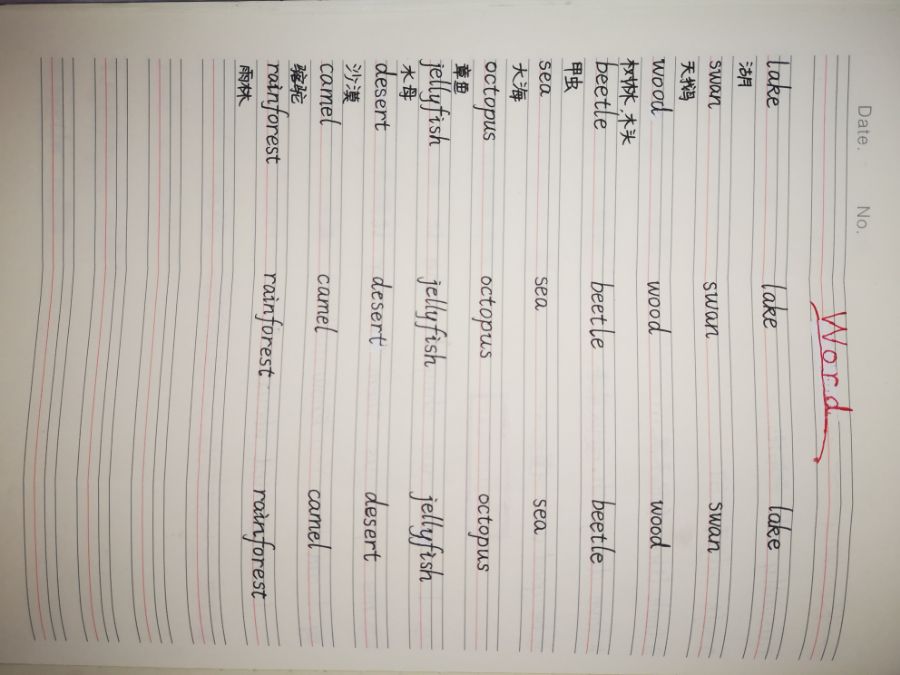 Date. No.
Word
lake lake lake
湖
swan swan swan
天鹅
wood wood wood
树林,木头
beetle beetle beetle
甲虫
sea sea sea
大海
octopus octopus octopus
章鱼
jellyfish jellyfish jellyfish
水母
desert desert desert
沙漠
camel camel camel
骆驼
rainforest rainforest rainforest
雨林